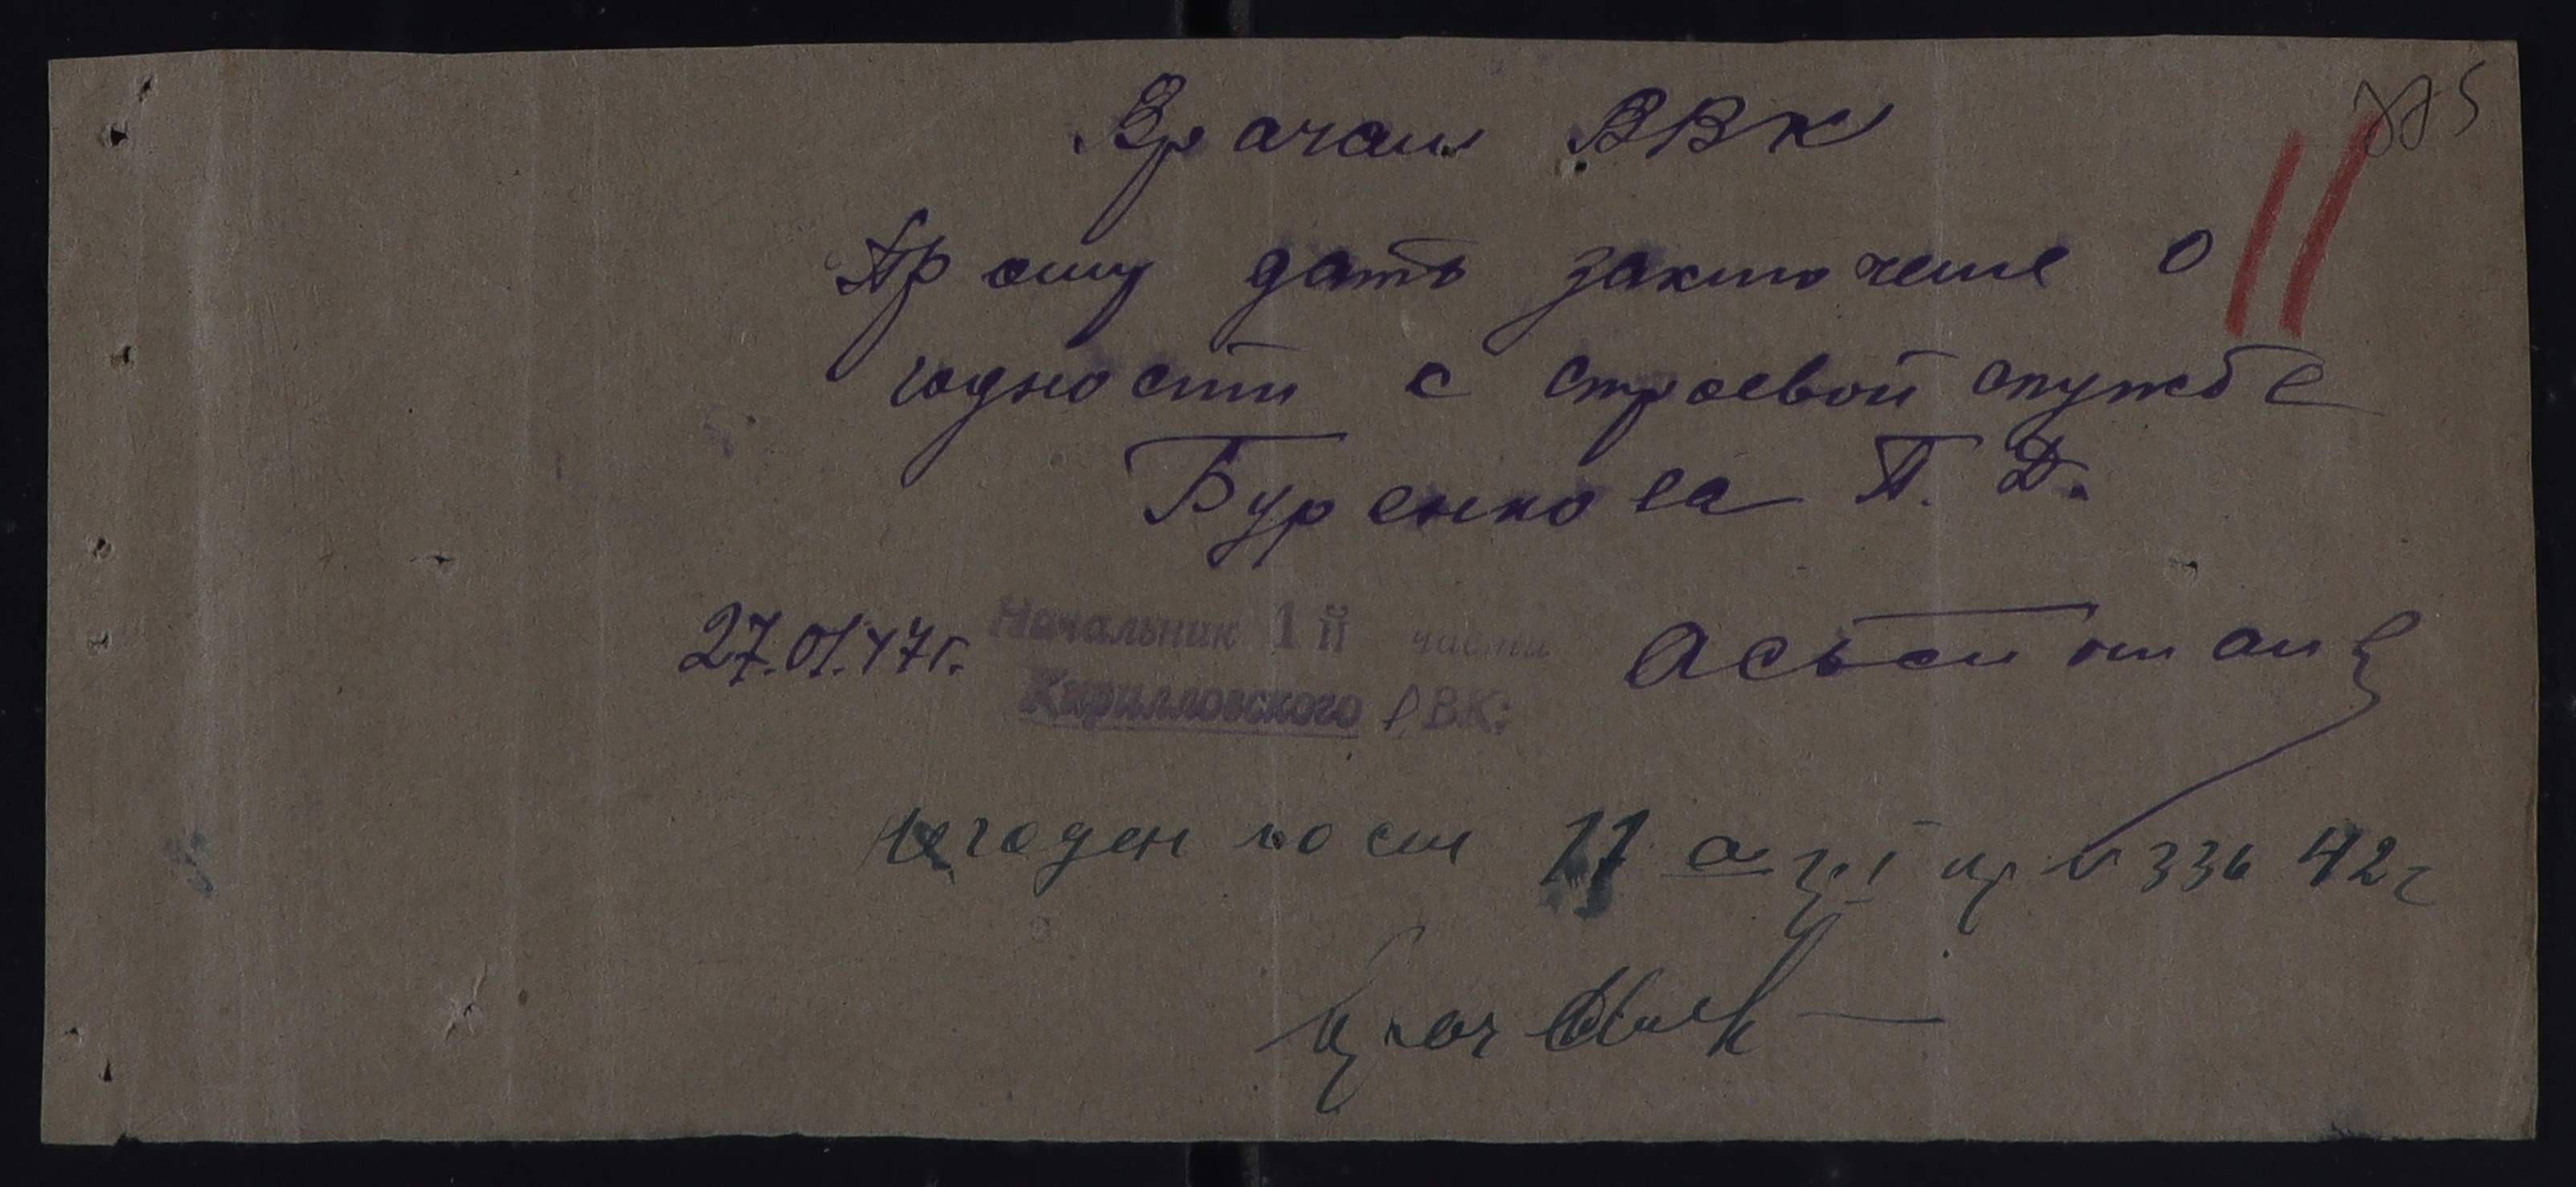 Врачам ВВК
Прошу дать заключение о
годности с строевой службе
Буренкова П. Д.
27.01.47г. Начальник 1й части
Кирилловского РВК:
Негоден по ст 11 пр № 336 42г
Врач